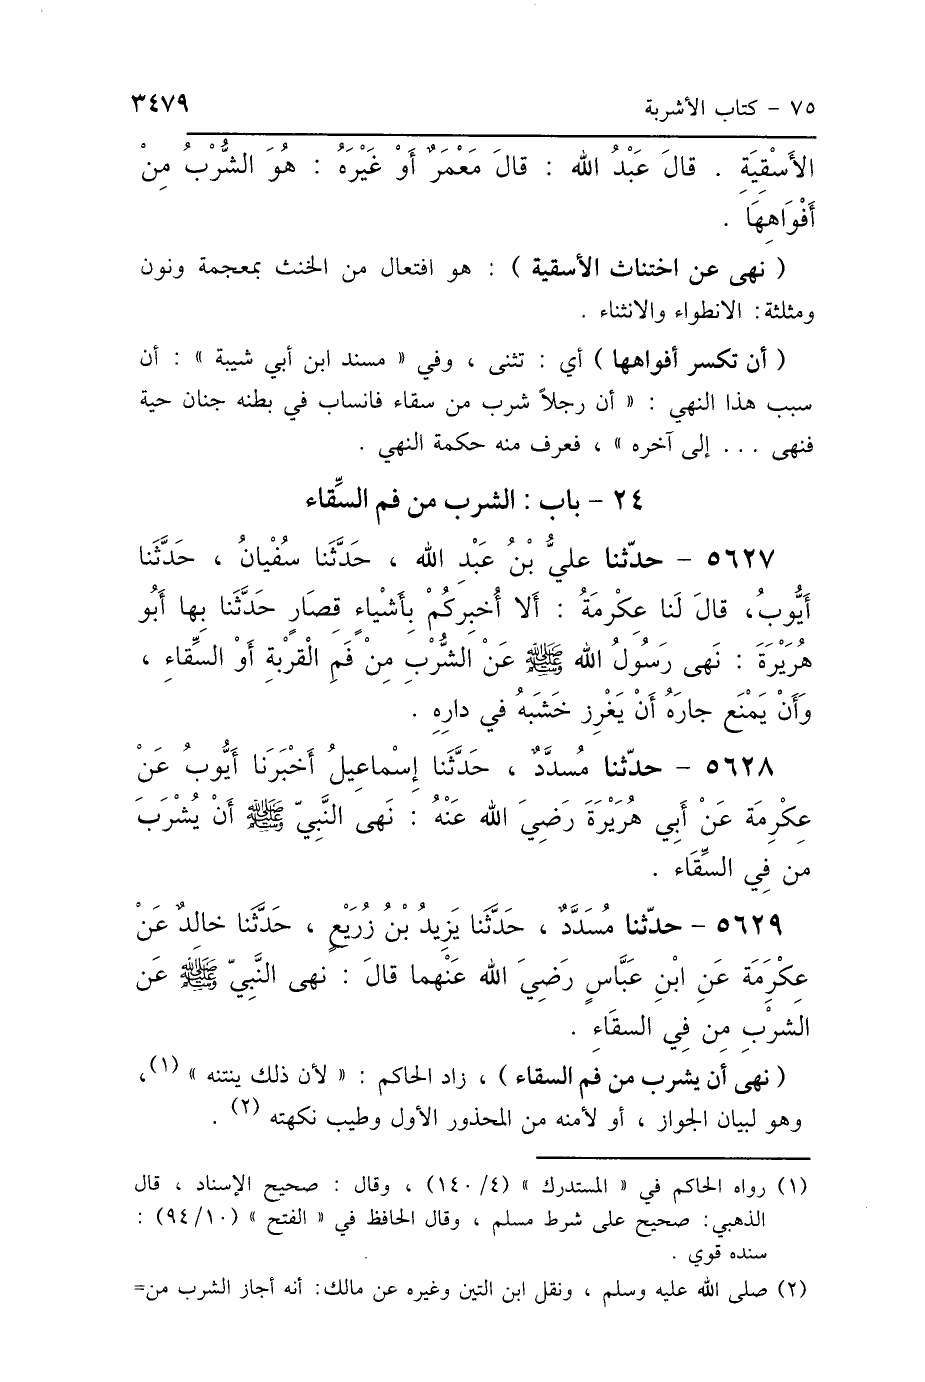 ٧٥ - كتاب الأشربة ٣٤٧٩
الأَسْقِيَةِ . قالَ عَبْدُ الله : قالَ مَعْمَرٌ أَوْ غَيْرَهُ : هُوَ الشُّرْبُ مِنْ
أَفْوَاهِهَا .
( نهى عن اختناث الأسقية ) : هو افتعال من الخنث بمعجمة ونون
ومثلثة: الانطواء والانثناء .
( أن تكسر أفواهها ) أي : تثنى ، وفي « مسند ابن أبي شيبة » : أن
سبب هذا النهي : « أن رجلاً شرب من سقاء فانساب في بطنه جنان حية
فنهى ... إلى آخره » ، فعرف منه حكمة النهي .
٢٤ - باب : الشرب من فم السِّقاء
٥٦٢٧ - حدّثنا عليُّ بْنُ عَبْدِ الله ، حَدَّثَنا سُفْيانُ ، حَدَّثَنا
أَيُّوبُ، قالَ لَنا عِكْرِمَةُ : أَلا أُخبِركُمْ بِأَشْياءٍ قِصَارٍ حَدَّثَنا بِها أَبُو
هُرَيْرَةَ : نَهى رَسُولُ الله ﷺ عَنْ الشُّرْبِ مِنْ فَمِ الْقرْبةِ أَوْ السِّقاءِ ،
وَأَنْ يَمْنَع جارَهُ أَنْ يَغْرِز خَشَبَهُ في دارِهِ .
٥٦٢٨ - حدّثنا مُسدَّدٌ ، حَدَّثَنا إِسْماعِيلُ أَخْبَرَنا أَيُّوبُ عَنْ
عِكْرِمَة عَنْ أَبي هُرَيْرَةَ رَضِيَ الله عَنْهُ : نَهى النَّبيّ ﷺ أَنْ يُشْرَبَ
مِن فِي السِّقَاء .
٥٦٢٩ - حدّثنا مُسَدَّدٌ ، حَدَّثَنا يَزِيدُ بْنُ زُرَيْعٍ ، حَدَّثَنا خالِدٌ عَنْ
عِكْرَمَة عَنِ ابْنِ عَبَّاسٍ رَضِيَ الله عَنْهما قالَ : نهى النَّبيّ ﷺ عَن
الشرْبِ مِن فِي السقَاءِ .
( نهى أن يشرب من فم السقاء ) ، زاد الحاكم : « لأن ذلك ينتنه » (١)،
وهو لبيان الجواز ، أو لأمنه من المحذور الأول وطيب نكهته (٢) .
(١) رواه الحاكم في « المستدرك » (٤/ ١٤٠) ، وقال : صحيح الإسناد ، قال
الذهبي: صحيح على شرط مسلم ، وقال الحافظ في « الفتح » (١٠/ ٩٤) :
سنده قوي .
(٢) صلى الله عليه وسلم ، ونقل ابن التين وغيره عن مالك: أنه أجاز الشرب من=